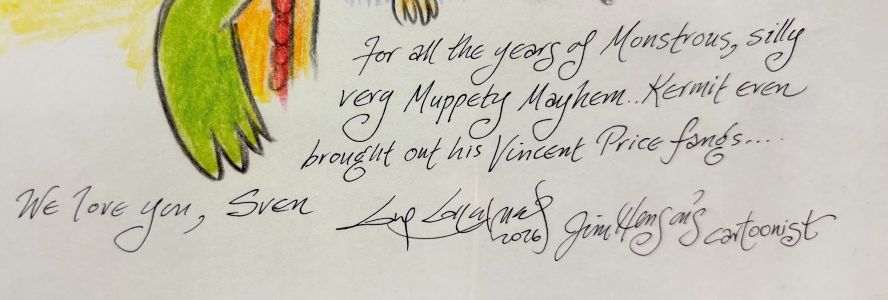 For all the years of Monstrous, silly
very Muppety Mayhem.. Kermit even
brought out his Vincent Price fangs....
We love you, Sven
2026 Jim Henson's cartoonist